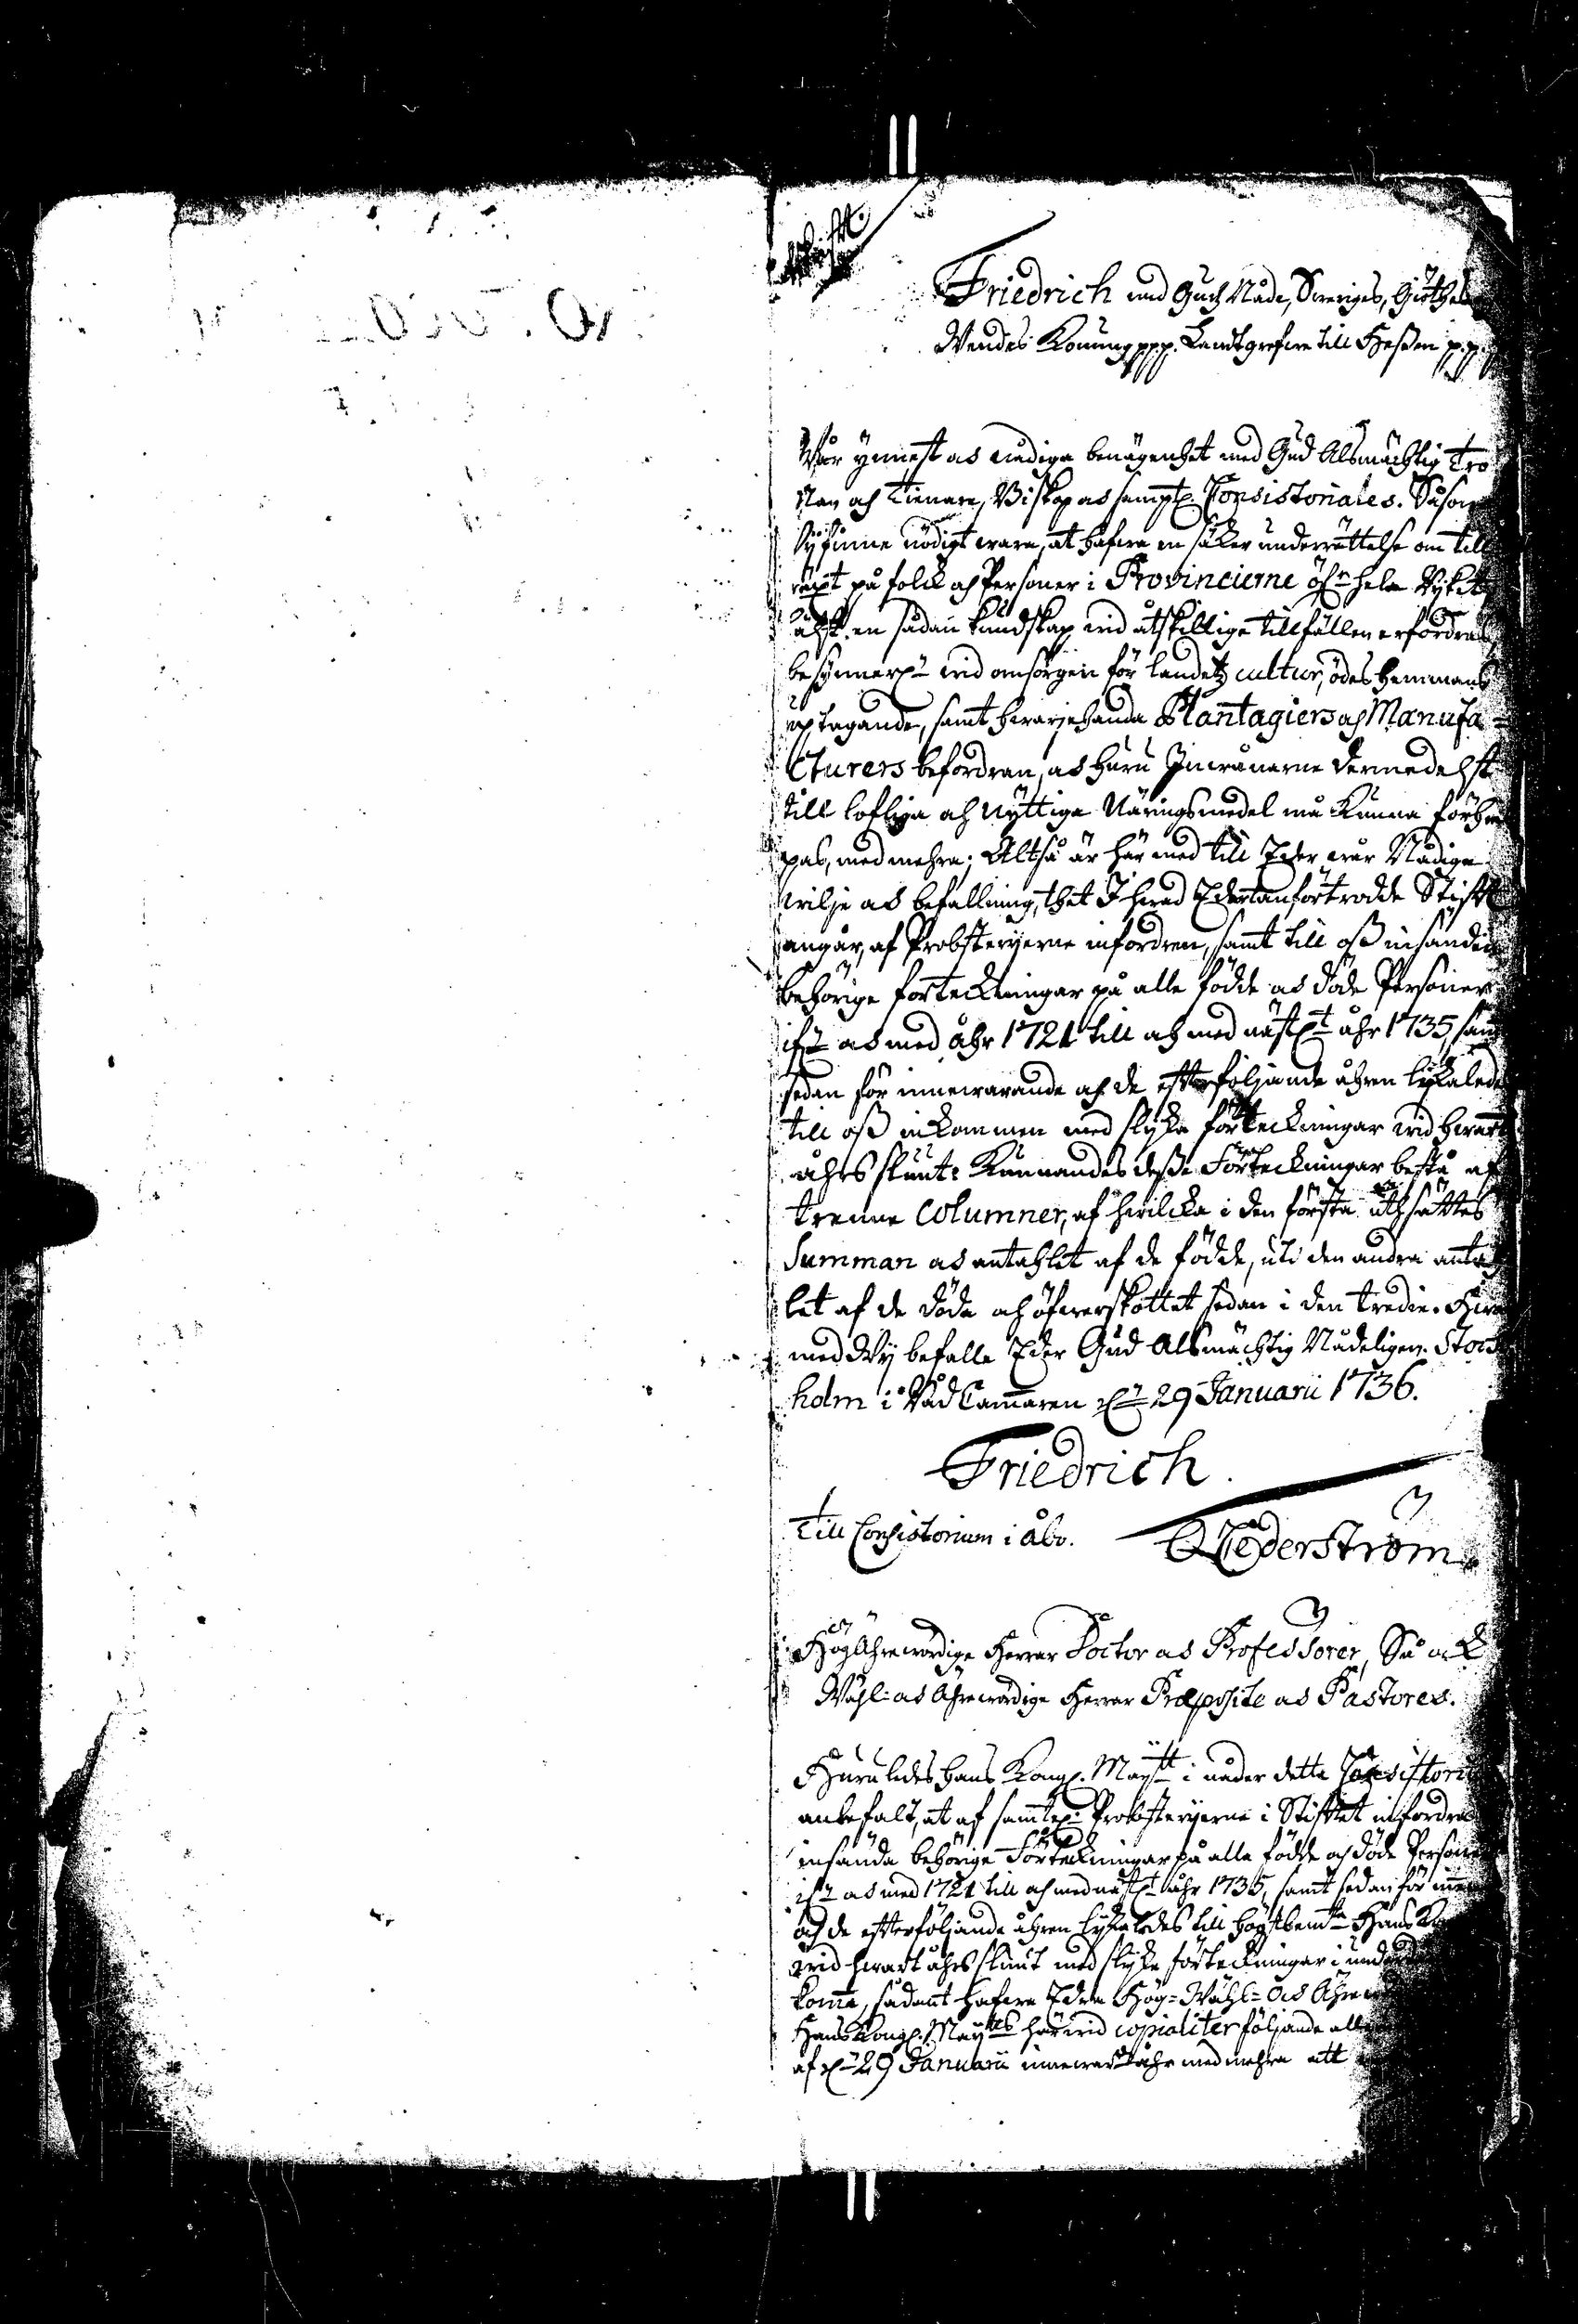 Friedrich med Guds Nåde, Sweriges, Giöthes
Wendes Konung ppp. Landtgrefwe till Hessen p.p.
Wår ynnest och nådiga benägenhet med Gud Alsmächtig Tro
Man och Tienare, Biskop och samptl. Consistoriales. Såsom
Wy finne nödigt wara, at hafwa en säker underrättelse om till
wäxt på folck och Personer i Provincierne öfr hela Ryket
en sådan kundskap wid åtskillige tillfällen erfordras,
besynnerln wid omsorgen för landetz cultur, ödes hemmans
optagande, samt hwarjehanda Plantagiers och Manufa=
cturers befordran, och huru Inwånarne dermedelst
till lofliga och nyttiga Näringsmedel må kunna förhiel
pas, med mehra; Altså är här med till Eder wår Nådige
wilje och befallning, thet I hwad Edert anförtrodde Stift
angår, af Probsterierne infordren, samt till oss insänden
behörige förteckningar på alle födde och döde Personer
ifrn och med åhr 1721 till och med nästlt åhr 1735, samt
sedan för innewarande och de efterföljande åhren lykaledes
till oss inkommen med slyka förteckningar wid hwart
åhrs slut: Kunnandes desse Förteckningar bestå af
trenne Columner, af hwilcka i den första uthsättes
Summan och antahlet af de födde, uti den andra antah
let af de döde och öfwerskottet sedan i den tredie. Hwar
med Wy befalle Eder Gud Alsmächtig Nådeligen. Stock
holm i Råd Cammaren dn 29 Januarii 1736.
Friedrich.
Till Consistorium i Åbo.
Cederström
HögÄhrewördige Herrar Doctor och Professorer, Så ock
Wähl- och Ährewördige Herrar Præposite och Pastores.
Huruledes Hans Kongl. Maÿtt i nåder detta Consistorium
anbefalt, at af samtel. Probsterierne i Stiftet infordra
insända behörige Förteckningar på alle födde och döde Personer
ifrn och med 1721 till och med nästlt åhr 1735, samt sedan för inne
och de efterföljande åhren lykaledes till högstbemte Hans Ko
wid hwart åhrs slut med slyka förteckningar i und
komma, sådant hafwa Edra Hög= Wähl= och Ährew
Hans Kongl. Maÿtts härwid copialiter följande alle
af dn 29 Januarii innewarde åhr med mehra att